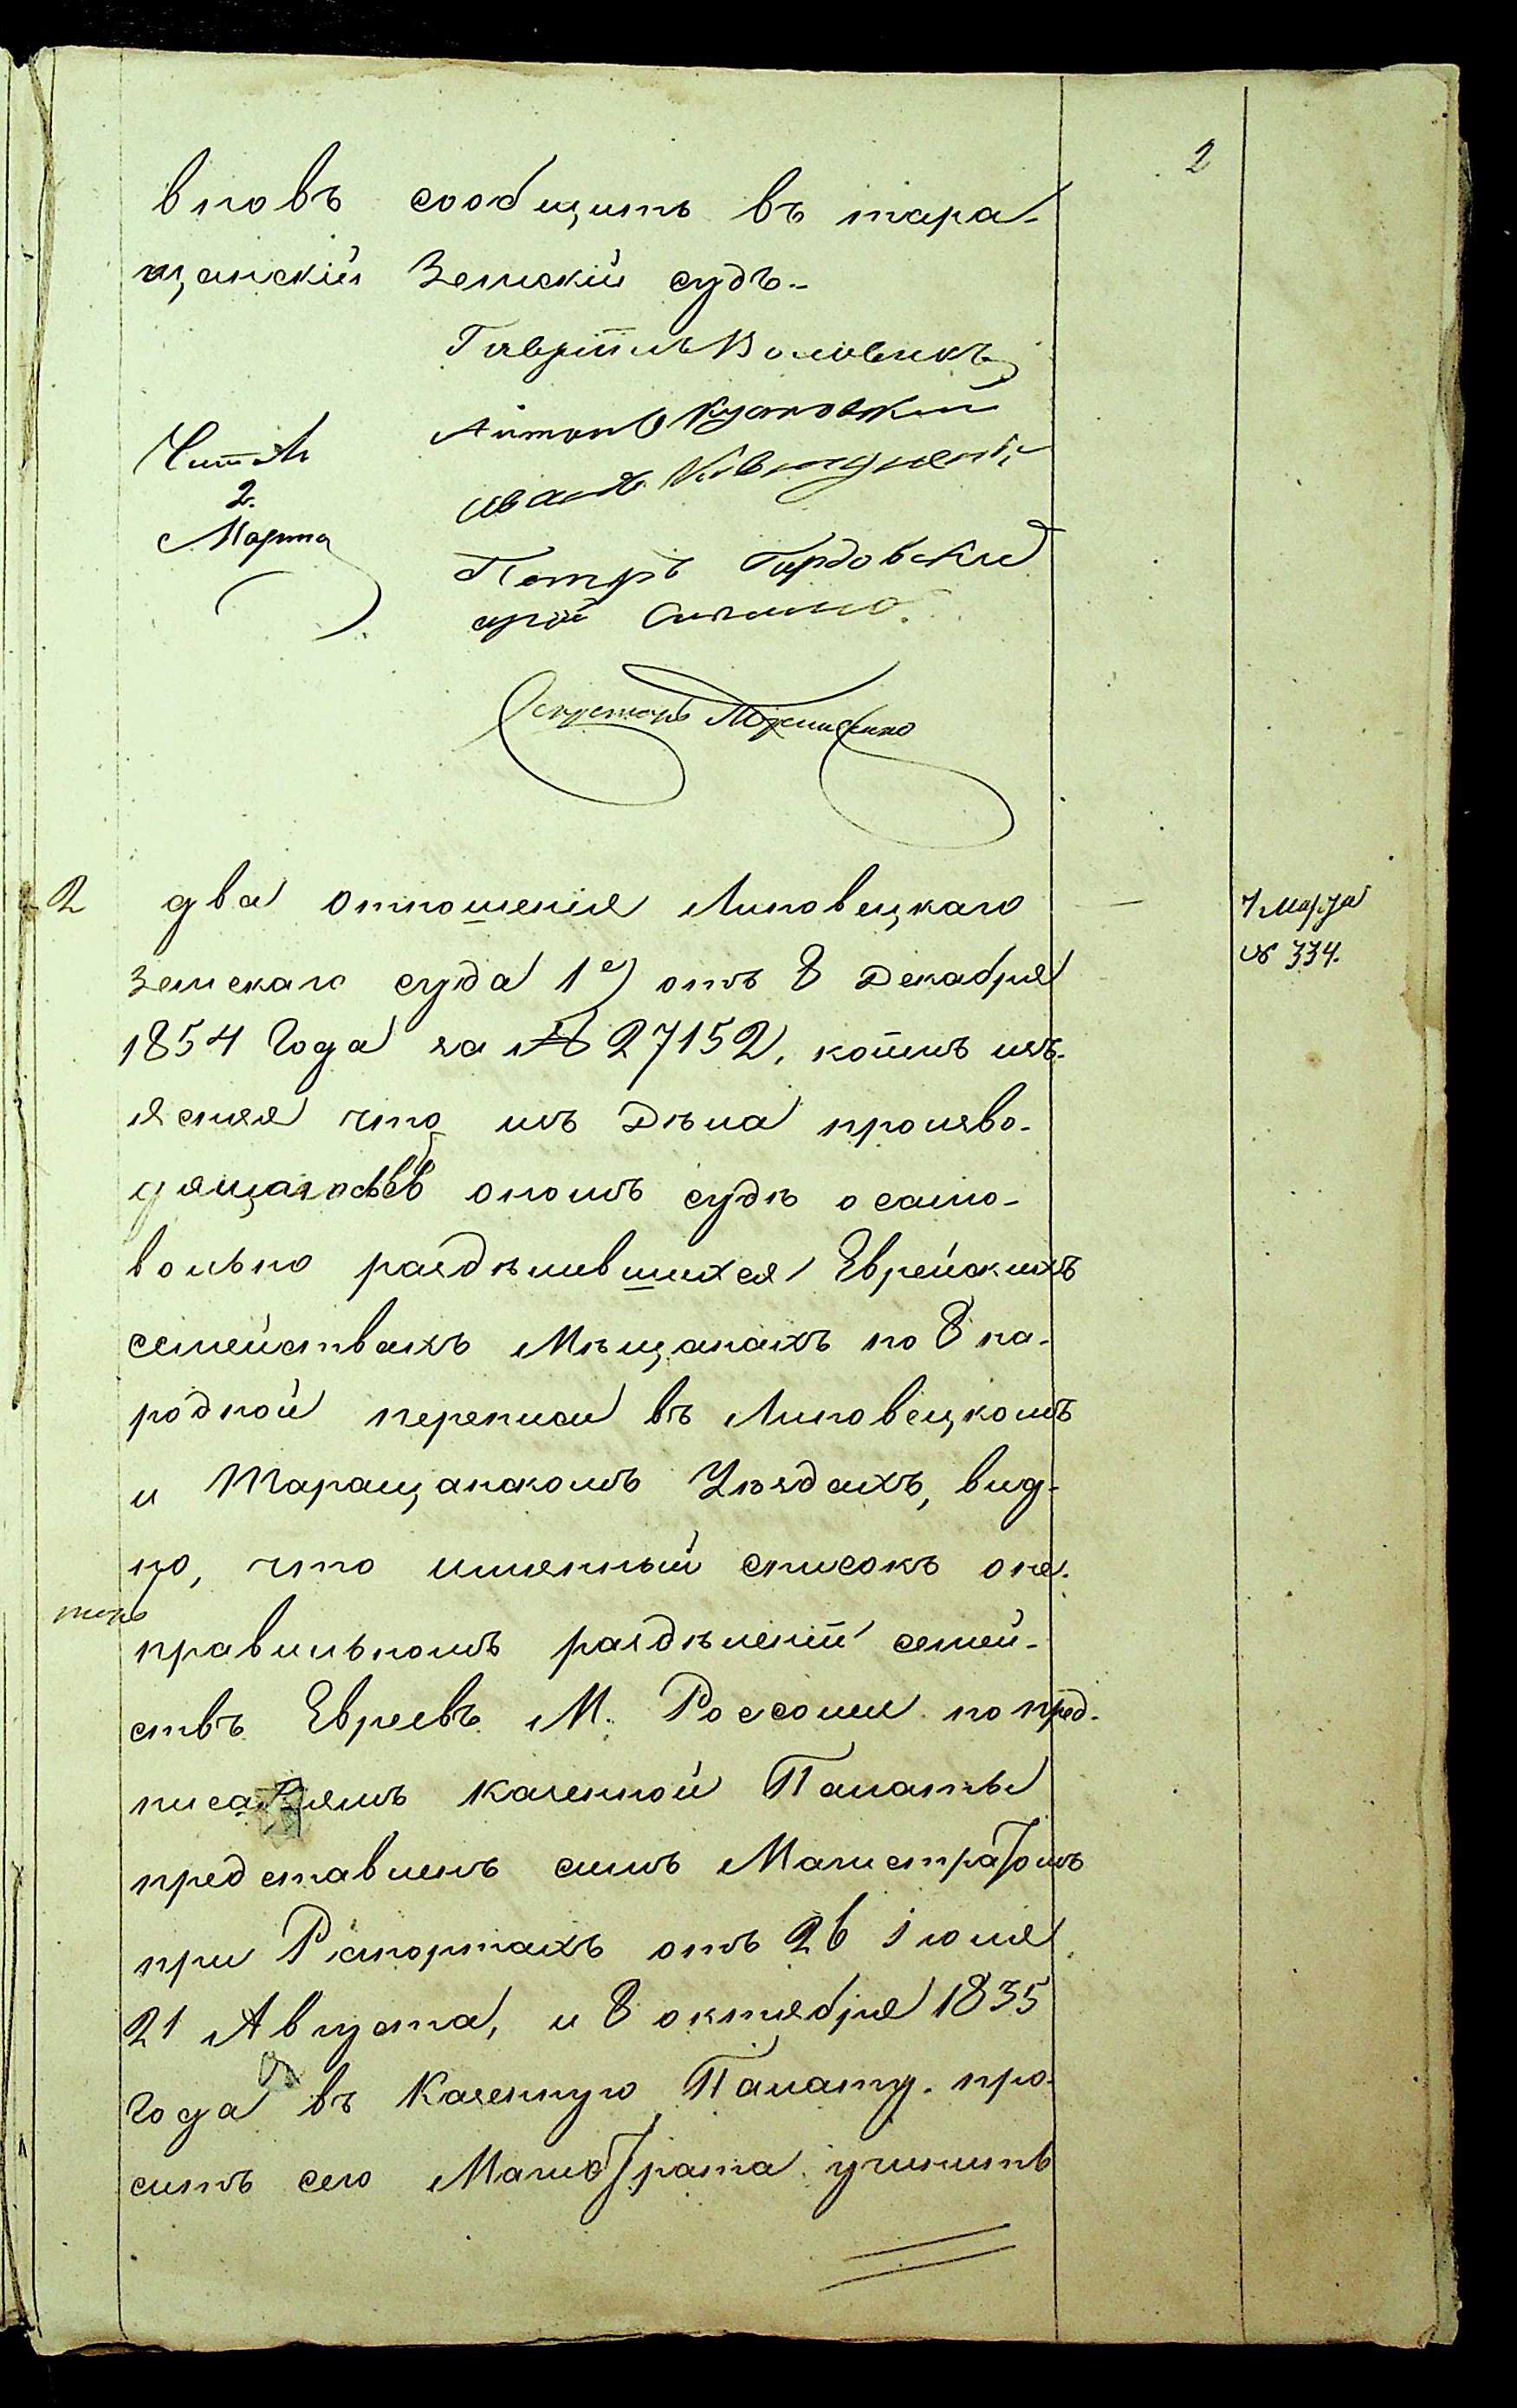 2
вновь сообщить въ тара-
щанскій Земскій судъ.-
Гавріилъ Воловикъ
Антонъ Куановскій
Читалъ
2.
Марта
Иванъ
Петръ Гордовскій
Секретарь
2 два отношенія Липовецкаго
7 Марта
№ 334.
Земскаго суда 1е) отъ 8 Декабря
1854 Года за № 27152, коимъ изъ-
ясняя что изъ Дѣла произво-
дящагося въ ономъ судѣ о само-
вольно раздѣлившихся Еврейскихъ
семействахъ Мѣщанахъ по 8 на-
родной переписи въ Липовецкомъ
и Таращанскомъ Уѣздахъ, вид-
но, что имянный списокъ о не-
правильномъ раздѣленіи семей-
ствъ Евреевъ М. Россоши по пред-
писаніямъ Казенной Палаты
представленъ симъ Магистратомъ
при Рапортахъ отъ 26 Іюля
21 Августа, и 8 октября 1835
Года въ Казенную Палату. про-
ситъ сего Магистрата учинить